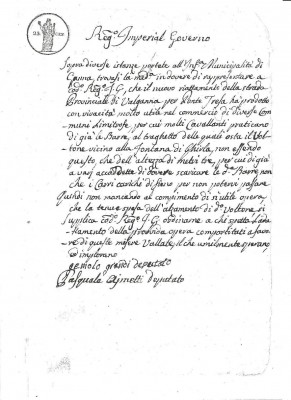 Reg.º Imperial Governo
Sopra diverse istanze portate all' Municipalità di
trovasi la in dovere di rappresentare a
cod.º Reg.º I. G. che il nuovo riattamento della strada
Provinciale di Valganna per Ponte Tresa ha prodotto
con vivacità molto utile nel commercio di diverse Com-
muni limitrofe, per cui molti Cavallanti praticano
di già le Barre, al traghetto delle quali osta il Vol-
tore vicino alla Fontana di Ghirla, non essendo
questo che dell' altezza di metri tre, per cui di già
a varj accadette di dovere scaricare le Barre, non
che i Carri carichi di fieno per non potervi passare
Quindi non mancando al compimento di sì utile opera,
che la tenue spesa dell' alzamento di d.º Voltone, si
supplica cod.º Reg.º I. G. ordinarne a chi spetta l'adat-
tamento della opera a favo-
re di queste misere Vallate, il che umilmente sperano
ed implorano
grandi deputato
Pasquale Ajmetti deputato